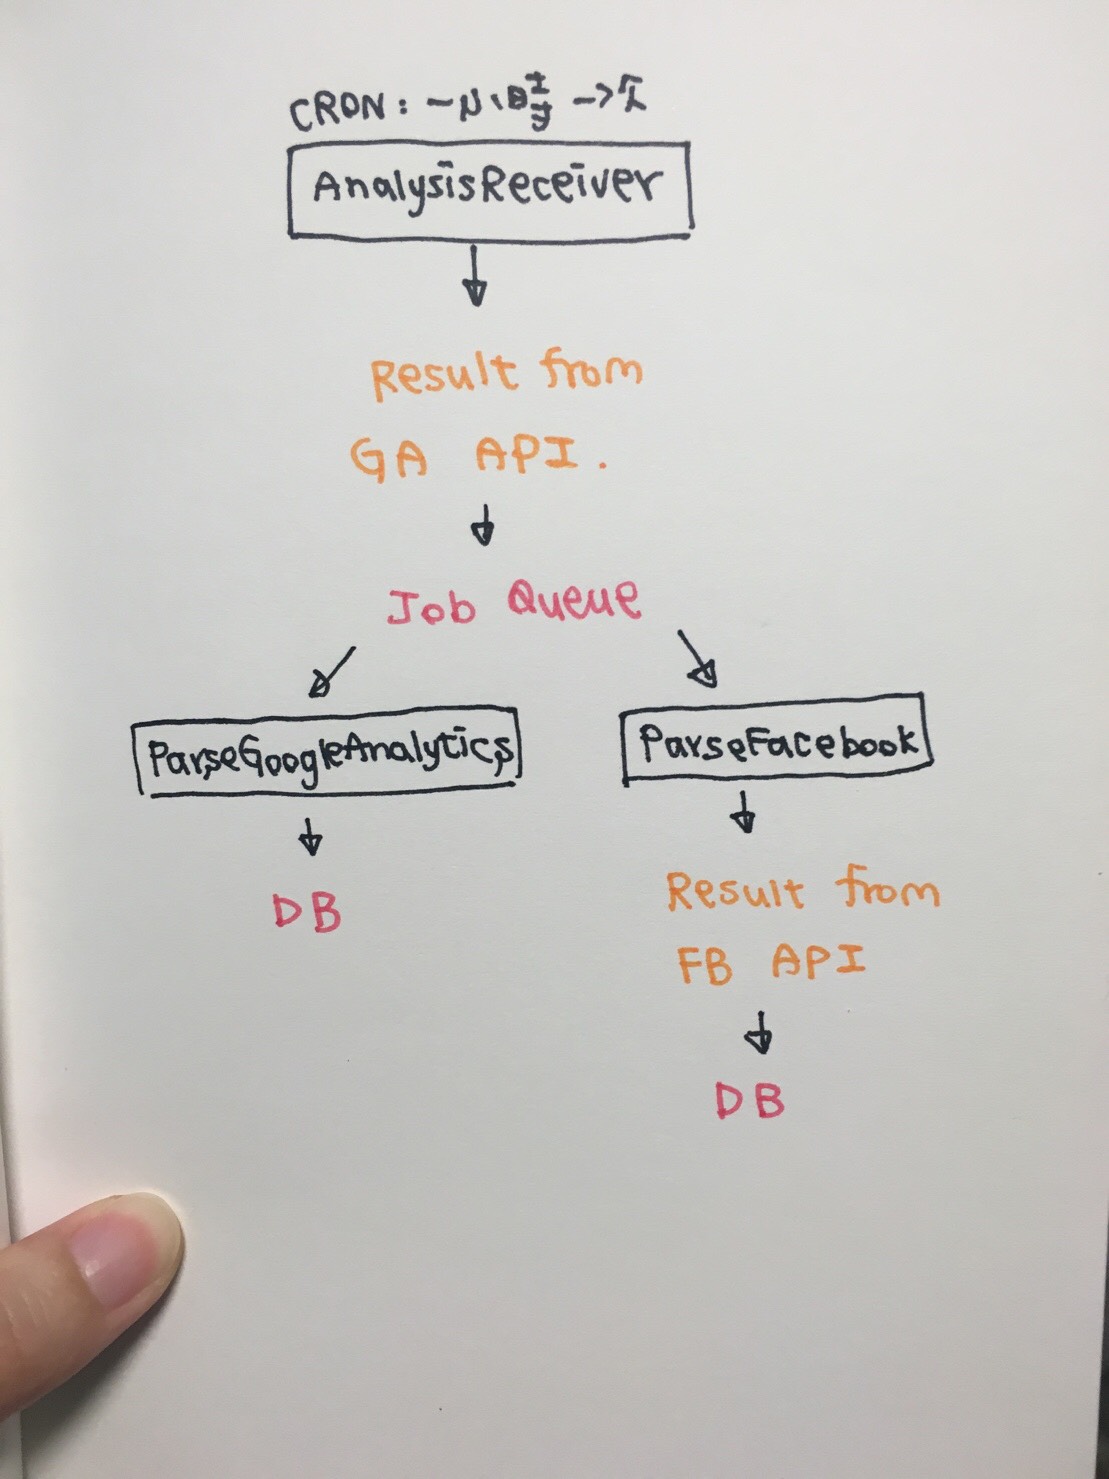 CRON: 一小時一次
AnalysisReceiver
Result from
GA API.
Job Queue
ParseGoogleAnalytics
ParseFacebook
DB
Result from
FB API
DB